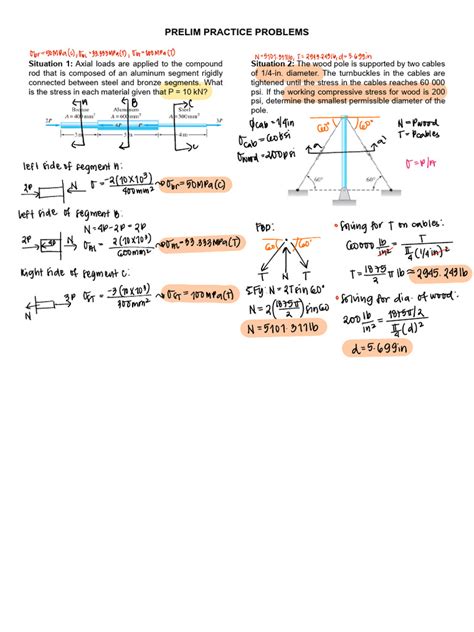 PRELIM PRACTICE PROBLEMS
σbr=50MPa(C), σAl=33.333MPa(T), σst=100MPa(T)
Situation 1: Axial loads are applied to the compound
rod that is composed of an aluminum segment rigidly
connected between steel and bronze segments. What
is the stress in each material given that P = 10 kN?
A B C
Bronze Aluminum Steel
A = 400 mm² A = 600 mm² A = 300 mm²
2P 4P 3P
3 m 4 m
left side of segment A:
2P N σ = -2(10×10³) / 400mm² → σbr = 50MPa(C)
left side of segment B:
N = 4P - 2P = 2P
2P 4P N σ = 2(10×10³) / 600mm² → σAl = 33.333MPa(T)
Right side of segment C:
N 3P σ = -3(10×10³) / 300mm² → σST = 100MPa(T)
N=5101.311lb, T = 2945.243lb, d=5.699in
Situation 2: The wood pole is supported by two cables
of 1/4-in. diameter. The turnbuckles in the cables are
tightened until the stress in the cables reaches 60 000
psi. If the working compressive stress for wood is 200
psi, determine the smallest permissible diameter of the
pole.
Øcab = 1/4in
σcab = 60ksi
σwood = 200psi
60° 60°
a a'
N = Pwood
T = Pcables
σ = P/A
60° 60°
FBD:
60° 60°
T N T
ΣFy: N = 2T sin60°
N = 2(1875π/2) sin60
N = 5101.311lb
• Solving for T on cables:
60000 lb/in² = T / π/4 (1/4in)²
T = 1875/2 π lb ≈ 2945.243lb
• Solving for dia. of wood:
200 lb/in² = 1875π/2 / π/4 (d)²
d = 5.699in